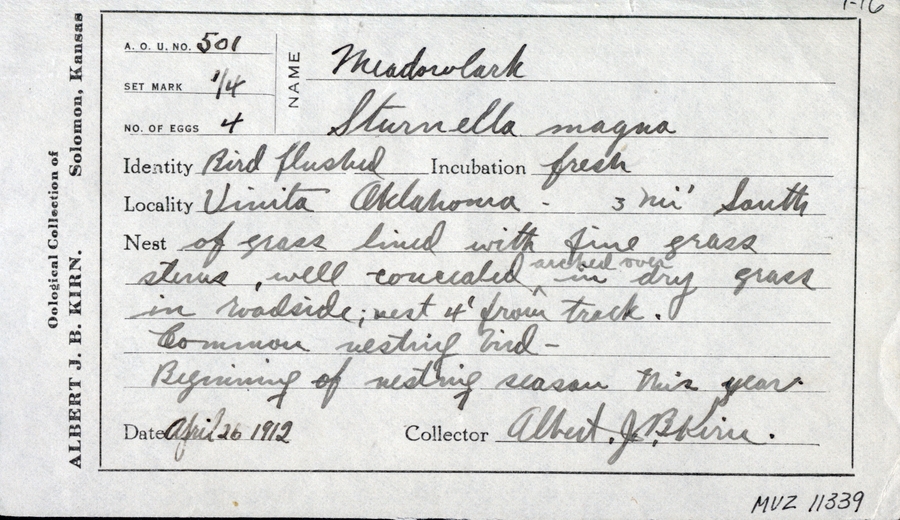 1-16
Oological Collection of
ALBERT J. B. KIRN. Solomon, Kansas
A. O. U. NO. 501
SET MARK 1/4
NO. OF EGGS 4
NAME Meadowlark
Sturnella magna
Identity Bird flushed Incubation fresh
Locality Vinita Oklahoma - 3 mi' South
Nest of grass lined with fine grass
stems, well concealed ^ arched over in dry grass
in roadside; nest 4' from track.
Common nesting bird -
Beginning of nesting season this year.
Date April 26 1912 Collector Albert. J. B. Kirn.
MVZ 11339